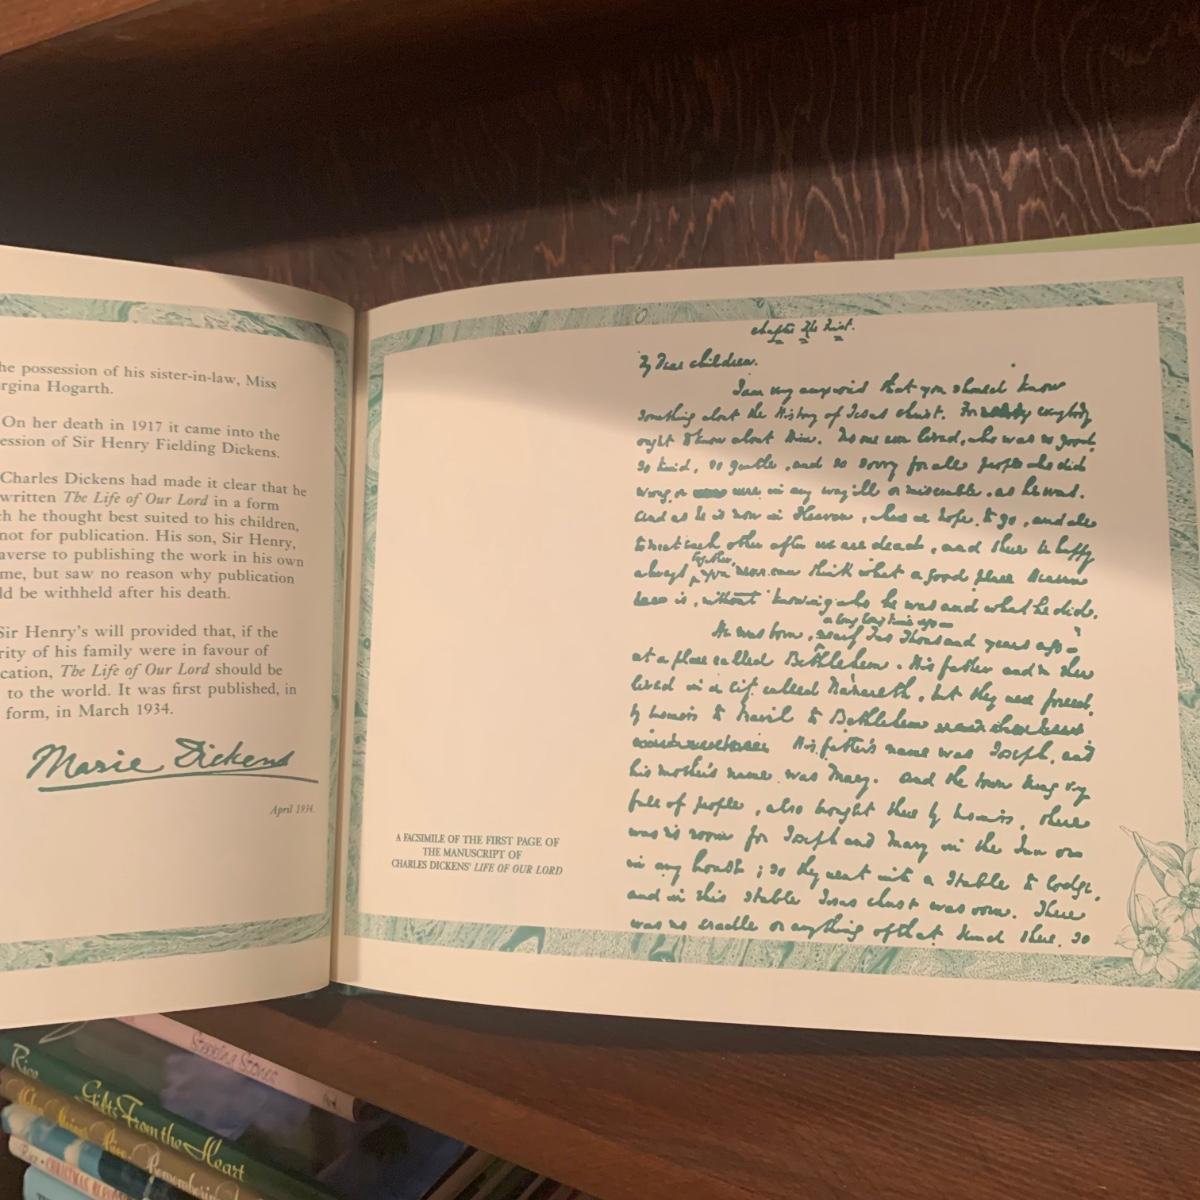 he possession of his sister-in-law, Miss
rgina Hogarth.
On her death in 1917 it came into the
ession of Sir Henry Fielding Dickens.
Charles Dickens had made it clear that he
written The Life of Our Lord in a form
h he thought best suited to his children,
not for publication. His son, Sir Henry,
averse to publishing the work in his own
me, but saw no reason why publication
ld be withheld after his death.
Sir Henry's will provided that, if the
rity of his family were in favour of
cation, The Life of Our Lord should be
to the world. It was first published, in
form, in March 1934.
Marie Dickens
April 1934.
A FACSIMILE OF THE FIRST PAGE OF
THE MANUSCRIPT OF
CHARLES DICKENS' LIFE OF OUR LORD
Chapter The First.
My Dear children,
I am very anxious that you should know
something about the History of Jesus Christ. For everybody
ought to know about Him. No one ever lived, who was so good,
so kind, so gentle, and so sorry for all people who did
wrong, or were in any way ill or miserable, as he was.
And as he is now in Heaven, where we hope to go, and all
to meet each other after we are dead, and there be happy
always together, you never can think what a good place Heaven
is, without knowing who he was and what he did.
He was born, a long long time ago nearly Two Thousand years ago
at a place called Bethlehem. His father and mother
lived in a city called Nazareth, but they were forced,
by business to travel to Bethlehem
His father's name was Joseph, and
his mother's name was Mary. And the town being very
full of people, also brought there by business, there
was no room for Joseph and Mary in the Inn or
in any house; so they went into a Stable to lodge,
and in this stable Jesus Christ was born. There
was no cradle or anything of that kind there, so
Stepping Stones
Rice
Gifts From the Heart
Rice
Remembering
CHRISTMAS